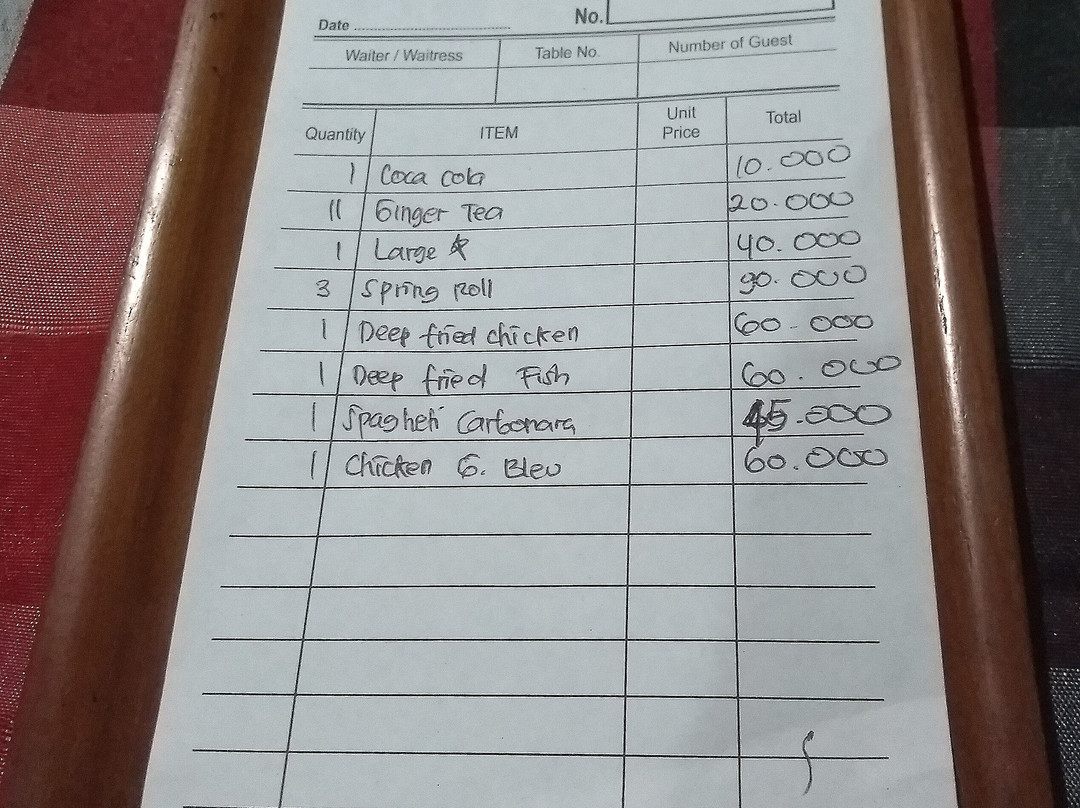 Date No.
Waiter / Waitress Table No. Number of Guest
Quantity ITEM Unit Price Total
1 Coca cola 10.000
11 Ginger Tea 20.000
1 Large 40.000
3 Spring Roll 90.000
1 Deep fried chicken 60.000
1 Deep fried Fish 60.000
1 Spagheti Carbonara 45.000
1 Chicken G. Bleu 60.000